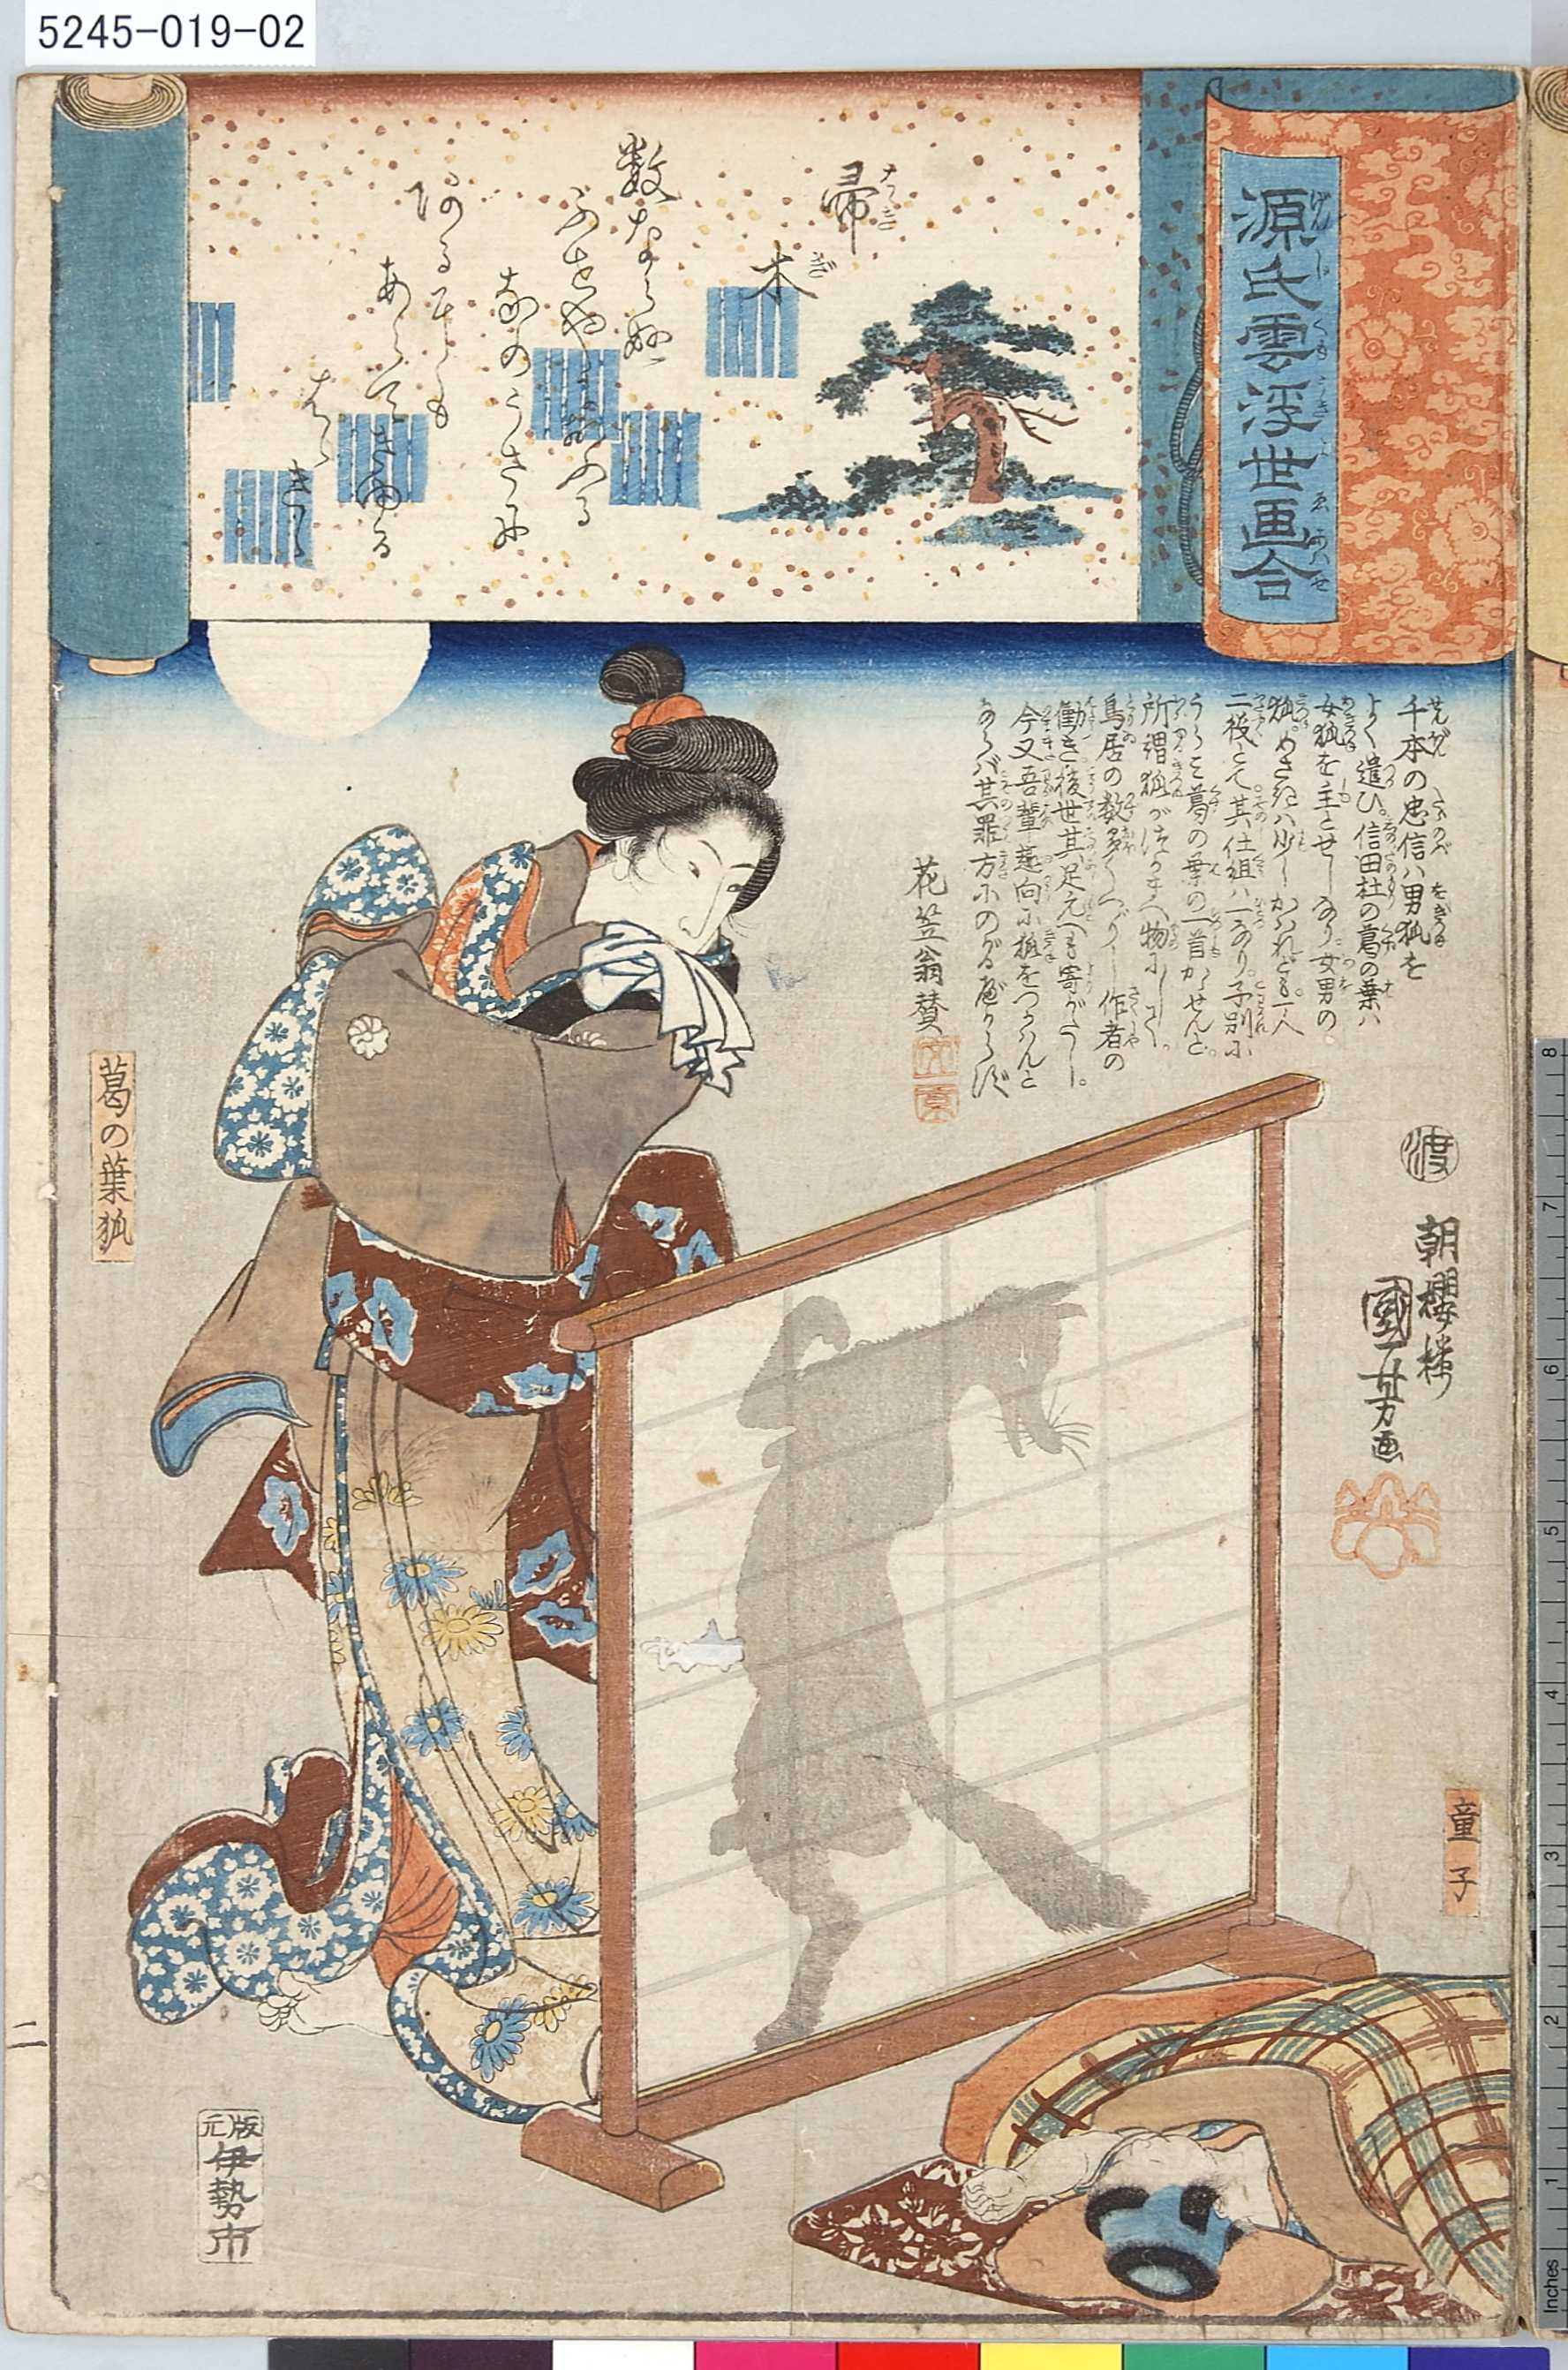 5245-019-02
源氏雲浮世画合
げんじくもうきよゑあはせ
帚木
はゝきぎ
数ならぬ
ふせやにおふる
なのうさに
あるにもあらで
きゆる
はゝきゝ
千本の忠信ハ男狐を
よく遣ひ。信田杜の葛の葉ハ
女狐を主とせしなり女男の
狐。めさきハ少しかはれども。一人
二役とて其仕組ハ一なり。子別に
うらミ葛の葉の一首かゝせんと。
所謂狐がつかまへ物にして。
鳥居の数多くくゞりし作者の
働き後世其足元へも寄がたし。
今又吾輩趣向に狐をつゝかんと
ならバ其罪方にのがるべからず
花笠翁賛
文
京
渡
朝櫻楼
國芳画
葛の葉狐
童子
二
版元
伊勢市
8
7
6
5
4
3
2
1
Inches